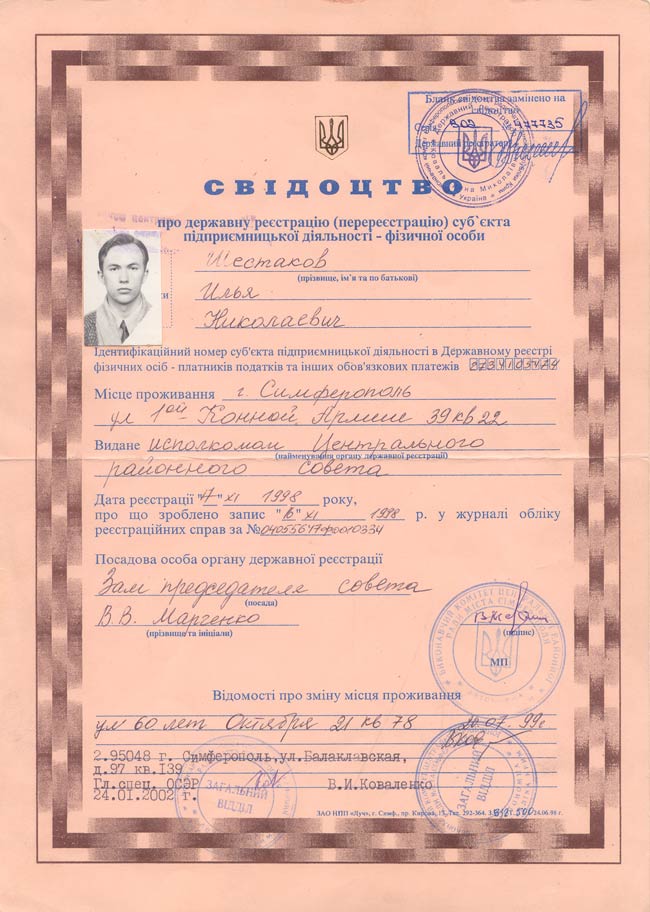 Бланк свідоцтва замінено на
свідоцтво
Серія В02 777735
Державний реєстратор
СВІДОЦТВО
про державну реєстрацію (перереєстрацію) суб`єкта
підприємницької діяльності - фізичної особи
Шестаков
(прізвище, ім'я та по батькові)
Илья
Николаевич
Ідентифікаційний номер суб'єкта підприємницької діяльності в Державному реєстрі
фізичних осіб - платників податків та інших обов'язкових платежів
Місце проживання г. Симферополь
ул 1ой Конной Армии 39 кв 22
Видане исполкомом Центрального
(найменування органу державної реєстрації)
районного совета
Дата реєстрації "17" XI 1998 року,
про що зроблено запис "16" XI 1998 р. у журналі обліку
реєстраційних справ за №
Посадова особа органу державної реєстрації
Зам председателя совета
(посада)
В.В. Марченко
(прізвище та ініціали)
(підпис)
МП
Відомості про зміну місця проживання
ул 60 лет Октября 21 кв 78 20.07.99г
2.95048 г. Симферополь,ул.Балаклавская,
д.97 кв.139
Гл.спец. ОСЭР В.И.Коваленко
24.01.2002 г.
ЗАГАЛЬНИЙ
ВІДДІЛ
ЗАГАЛЬНИЙ
ВІДДІЛ
ЗАО НПП «Луч», г. Симф., пр. Кирова, Тел. 292-364. 24.06.98 г.